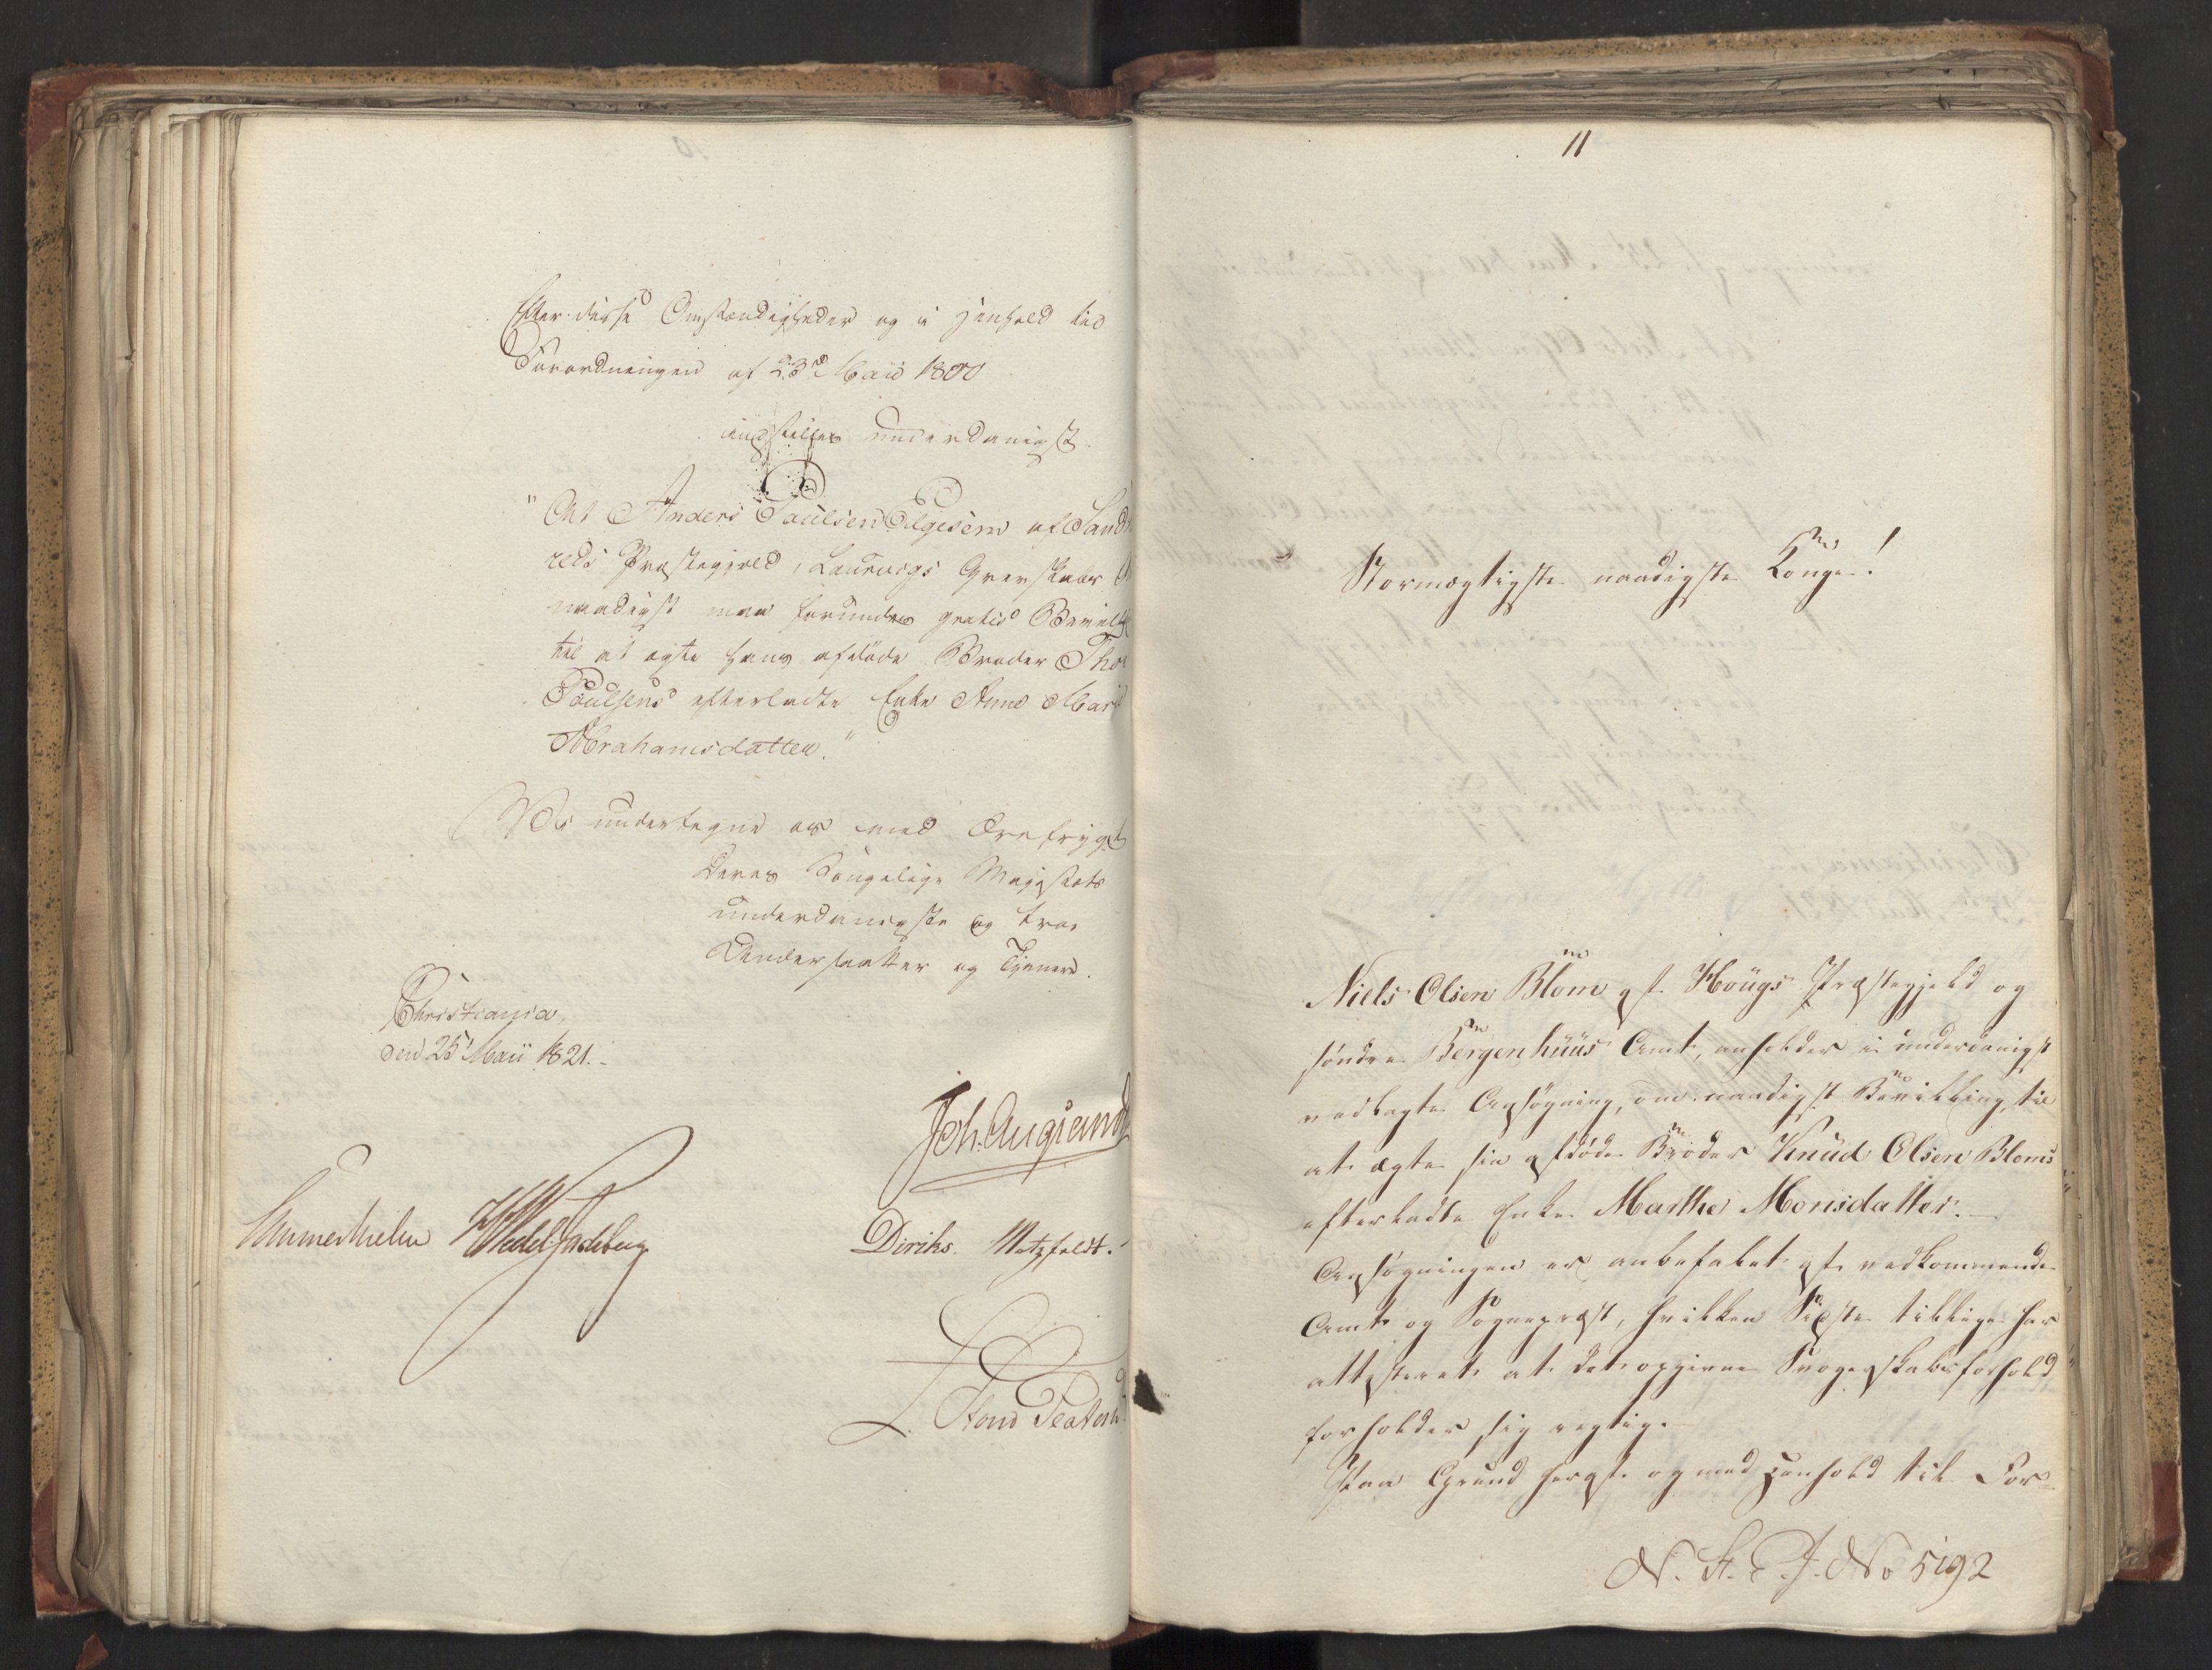 Efter disse Omstændigheder og i Henhold til
Forordningen af 23d Maii 1800
indstilles underdanigst
"At Anders Paulsen Elgesem af Sand
reds Præstegjeld, Laurvigs Grevskabs
naadigst maa forundes gratis Bevill
til at ægte hans afdøde Broder Thor
Paulsens efterladte Enke Anne Mari
Abrahamsdatter."
Vi undertegne os med Ærefrygt
Deres Kongelige Majestæts
underdanigste og troe
Undersaatter og Tjenere.
Christiania,
den 25' Maii 1821.
Joh. Collett
Sommerhielm
Diriks. Motzfeldt.
11
Stormægtigste naadigste Konge!
Niels Olsen Blom af Hougs Præstegjeld og
søndre Bergenhuus Amt, anholder i underdanigst
vedlagte Ansøgning, om naadigst Bevilling til
at ægte sin afdøde Broder Knud Olsen Bloms
efterladte Enke Marthe Monsdatter.
Ansøgningen er anbefalet af vedkommende
Amt og Sognepræst, hvilken Sidste tillige har
attesteret at det opgivne Svogerskabsforhold
forholder sig rigtig.
Paa Grund heraf og med Henhold til For-
N. St. E. J. No 5192